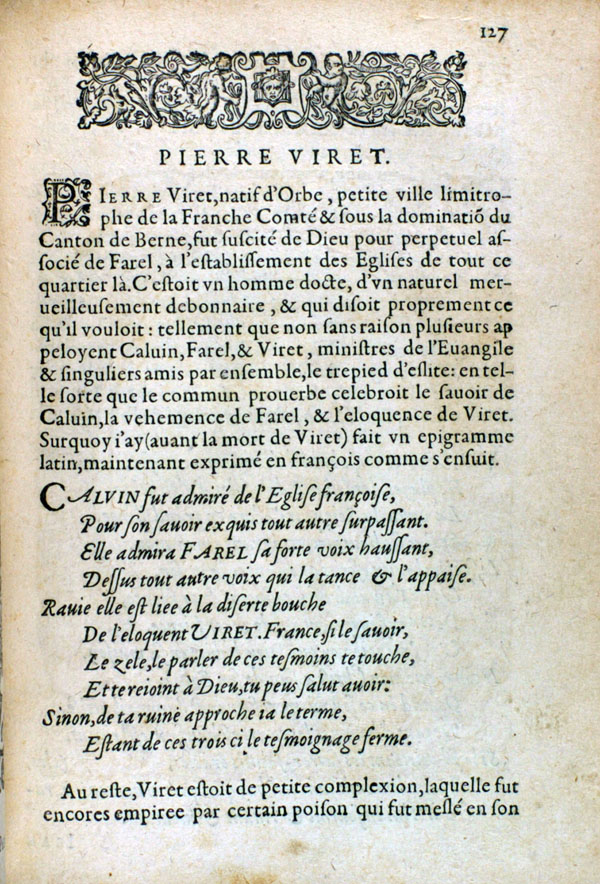 127
PIERRE VIRET.
PIERRE Viret, natif d'Orbe, petite ville limitro-
phe de la Franche Comté & sous la dominatiõ du
Canton de Berne, fut suscité de Dieu pour perpetuel as-
socié de Farel, à l'establissement des Eglises de tout ce
quartier là. C'estoit vn homme docte, d'vn naturel mer-
ueilleusement debonnaire, & qui disoit proprement ce
qu'il vouloit: tellement que non sans raison plusieurs ap
peloyent Caluin, Farel, & Viret, ministres de l'Euangile
& singuliers amis par ensemble, le trepied d'eslite: en tel-
le sorte que le commun prouerbe celebroit le sauoir de
Caluin, la vehemence de Farel, & l'eloquence de Viret.
Surquoy i'ay (auant la mort de Viret) fait vn epigramme
latin, maintenant exprimé en françois comme s'ensuit.
CALVIN fut admiré de l'Eglise françoise,
Pour son sauoir exquis tout autre surpassant.
Elle admira FAREL sa forte voix haussant,
Dessus tout autre voix qui la tance & l'appaise.
Rauie elle est liee à la diserte bouche
De l'eloquent VIRET. France, si le sauoir,
Le zele, le parler de ces tesmoins te touche,
Et te reioint à Dieu, tu peus salut auoir:
Sinon, de ta ruine approche ia le terme,
Estant de ces trois ci le tesmoignage ferme.
Au reste, Viret estoit de petite complexion, laquelle fut
encores empiree par certain poison qui fut meslé en son